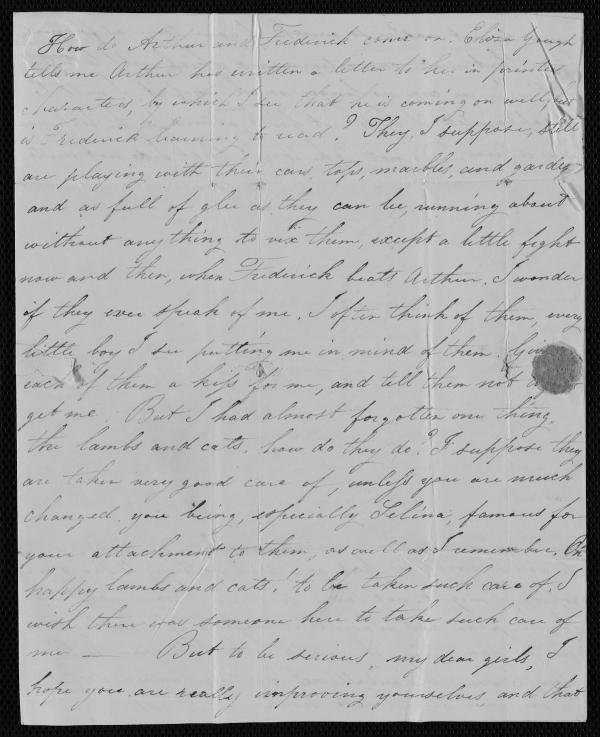 How do Arthur and Frederick come on. Eliza Gough
tells me Arthur has written a letter to her in printed
characters, by which I see that he is coming on well,
is Frederick learning to read? They, I suppose, still
are playing with their cars, tops, marbles, and garden
and as full of glee as they can be, running about
without anything to vex them, except a little fight
now and then, when Frederick beats Arthur. I wonder
if they ever speak of me. I often think of them, every
little boy I see putting me in mind of them. Give
each of them a kiss for me, and tell them not to
get me. But I had almost forgotten one thing,
the lambs and cats, how do they do? I suppose they
are taken very good care of, unless you are much
changed, you being, especially Selina, famous for
your attachment to them, as well as I remember. Oh
happy lambs and cats! to be taken such care of. I
wish there was someone here to take such care of
me — But to be serious, my dear girls, I
hope you are really improving yourselves, and that